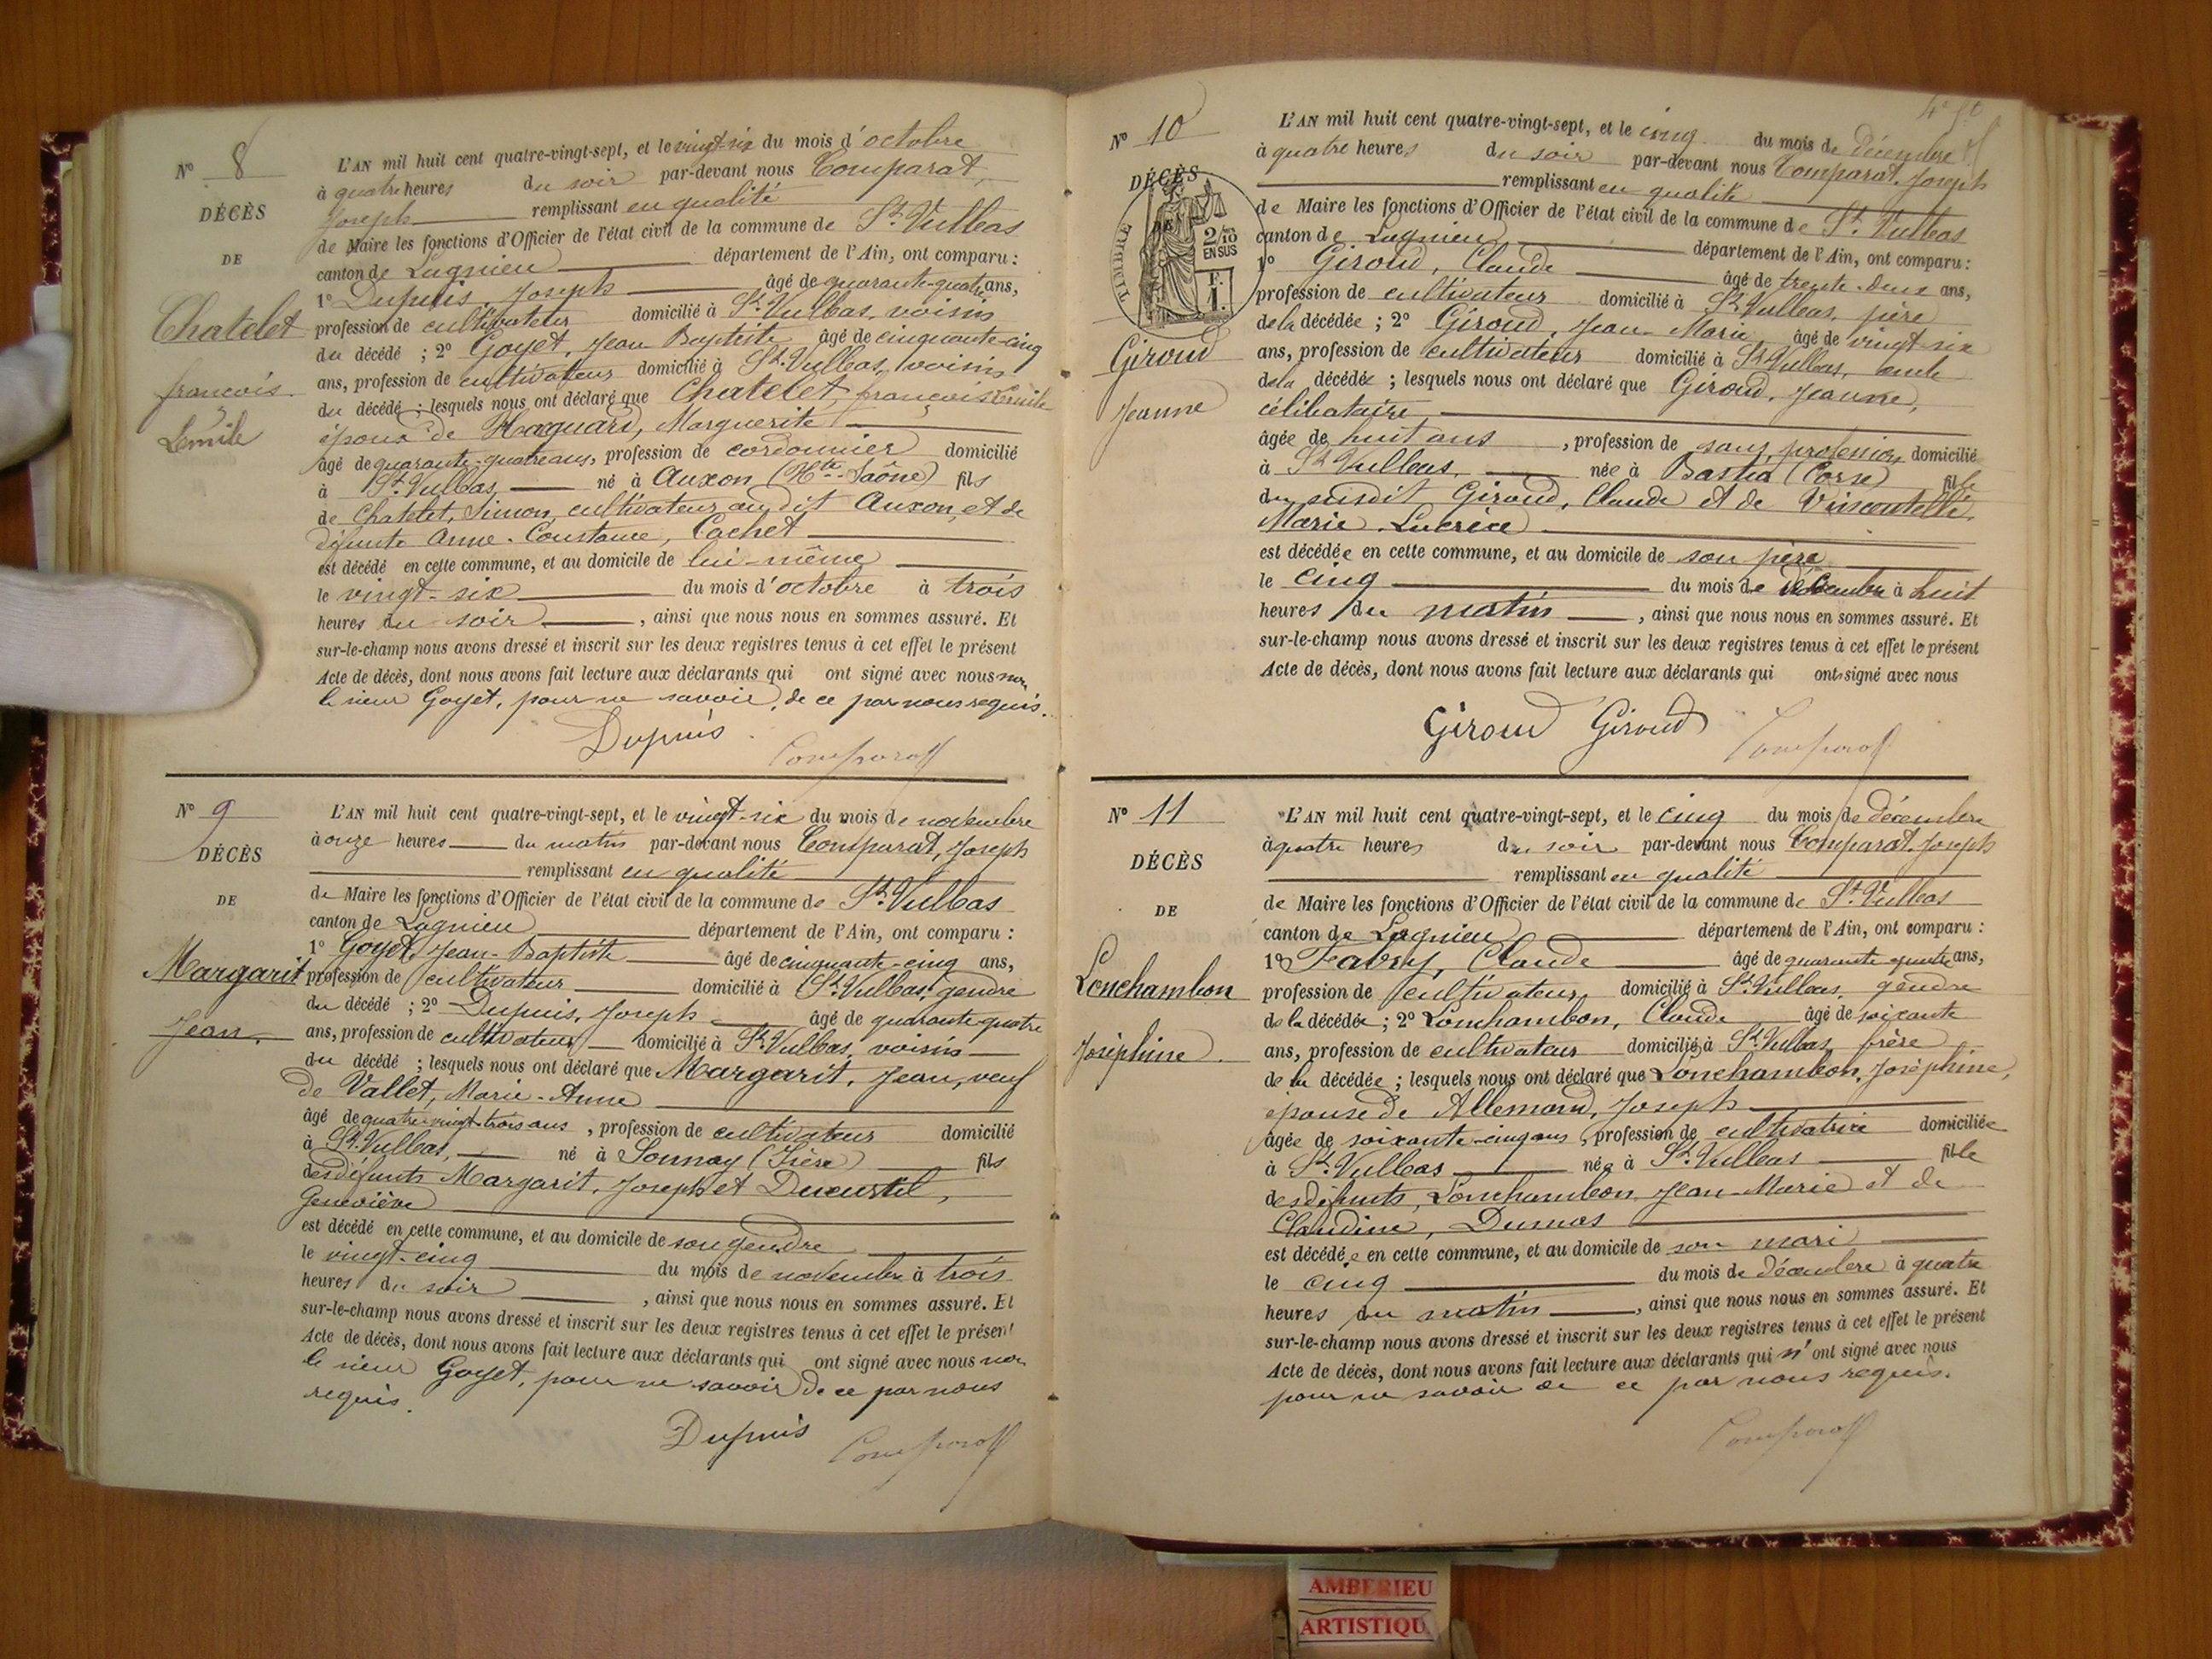 N° 8
DÉCÈS
DE
Chatelet
françois
Emile
L'AN mil huit cent quatre-vingt-sept, et le vingt-six du mois d'octobre
à quatre heures du soir par-devant nous Comparat,
Joseph remplissant en qualité
de Maire les fonctions d'Officier de l'état civil de la commune de St. Vulbas
canton de Lagnieu département de l'Ain, ont comparu :
1° Dupuis, Joseph âgé de quarante-quatre ans,
profession de cultivateur domicilié à St. Vulbas, voisin
du décédé ; 2° Goyet, Jean Baptiste âgé de cinquante-cinq
ans, profession de cultivateur domicilié à St. Vulbas, voisin
du décédé ; lesquels nous ont déclaré que Chatelet, françois Emile
époux de Haquard, Marguerite
âgé de quarante-quatre ans, profession de cordonnier domicilié
à St. Vulbas, né à Auxon (Hte Saône) fils
de Chatelet, Simon, cultivateur audit Auxon, et de
défunte Anne-Constance, Cachet
est décédé en cette commune, et au domicile de lui-même
le vingt-six du mois d'octobre à trois
heures du soir , ainsi que nous nous en sommes assuré. Et
sur-le-champ nous avons dressé et inscrit sur les deux registres tenus à cet effet le présent
Acte de décès, dont nous avons fait lecture aux déclarants qui ont signé avec nous non
le sieur Goyet, pour ne savoir, de ce par nous requis.
Dupuis Comparat
N° 9
DÉCÈS
DE
Margarit
Jean.
L'AN mil huit cent quatre-vingt-sept, et le vingt-six du mois de novembre
à onze heures du matin par-devant nous Comparat, Joseph
remplissant en qualité
de Maire les fonctions d'Officier de l'état civil de la commune de St. Vulbas
canton de Lagnieu département de l'Ain, ont comparu :
1° Goyet, Jean-Baptiste âgé de cinquante-cinq ans,
profession de cultivateur domicilié à St. Vulbas, gendre
du décédé ; 2° Dupuis, Joseph âgé de quarante-quatre
ans, profession de cultivateur domicilié à St. Vulbas, voisin
du décédé ; lesquels nous ont déclaré que Margarit, Jean, veuf
de Vallet, Marie-Anne
âgé de quatre-vingt-trois ans , profession de cultivateur domicilié
à St. Vulbas, né à Sonnay (Isère) fils
des défunts Margarit, Joseph et
Geneviève
est décédé en cette commune, et au domicile de son gendre
le vingt-cinq du mois de novembre à trois
heures du soir , ainsi que nous nous en sommes assuré. Et
sur-le-champ nous avons dressé et inscrit sur les deux registres tenus à cet effet le présent
Acte de décès, dont nous avons fait lecture aux déclarants qui ont signé avec nous non
le sieur Goyet, pour ne savoir de ce par nous
requis.
Dupuis Comparat
N° 10
DÉCÈS
TIMBRE
DE
2/10
EN SUS
Giroud
Jeanne
L'AN mil huit cent quatre-vingt-sept, et le cinq du mois de décembre
à quatre heures du soir par-devant nous Comparat, Joseph
remplissant en qualité
de Maire les fonctions d'Officier de l'état civil de la commune de St. Vulbas
canton de Lagnieu département de l'Ain, ont comparu :
1° Giroud, Claude âgé de trente-deux ans,
profession de cultivateur domicilié à St. Vulbas, père
de la décédée ; 2° Giroud, Jean-Marie âgé de vingt-six
ans, profession de cultivateur domicilié à St. Vulbas, oncle
de la décédée ; lesquels nous ont déclaré que Giroud, Jeanne,
célibataire,
âgée de huit ans , profession de sans profession domicilié
à St. Vulbas, née à Bastia (Corse) fille
du susdit Giroud, Claude et de
Marie
est décédée en cette commune, et au domicile de son père
le cinq du mois de décembre à huit
heures du matin , ainsi que nous nous en sommes assuré. Et
sur-le-champ nous avons dressé et inscrit sur les deux registres tenus à cet effet le présent
Acte de décès, dont nous avons fait lecture aux déclarants qui ont signé avec nous
Giroud Giroud Comparat
N° 11
DÉCÈS
DE
Lonchambon
Joséphine.
L'AN mil huit cent quatre-vingt-sept, et le cinq du mois de décembre
à quatre heures du soir par-devant nous Comparat, Joseph
remplissant en qualité
de Maire les fonctions d'Officier de l'état civil de la commune de St. Vulbas
canton de Lagnieu département de l'Ain, ont comparu :
1° Favry, Claude âgé de quarante quatre ans,
profession de cultivateur domicilié à St. Vulbas, gendre
de la décédée ; 2° Lonchambon, Claude âgé de soixante
ans, profession de cultivateur domicilié à St. Vulbas, frère
de la décédée ; lesquels nous ont déclaré que Lonchambon, Joséphine,
épouse de Allemand, Joseph
âgée de soixante-cinq ans , profession de cultivatrice domiciliée
à St. Vulbas née à St. Vulbas fille
des défunts, Lonchambon, Jean-Marie et de
Claudine, Dumas
est décédée en cette commune, et au domicile de son mari
le cinq du mois de décembre à quatre
heures du matin , ainsi que nous nous en sommes assuré. Et
sur-le-champ nous avons dressé et inscrit sur les deux registres tenus à cet effet le présent
Acte de décès, dont nous avons fait lecture aux déclarants qui n'ont signé avec nous
pour ne savoir de ce par nous requis.
Comparat
AMBERIEU
ARTISTIQU